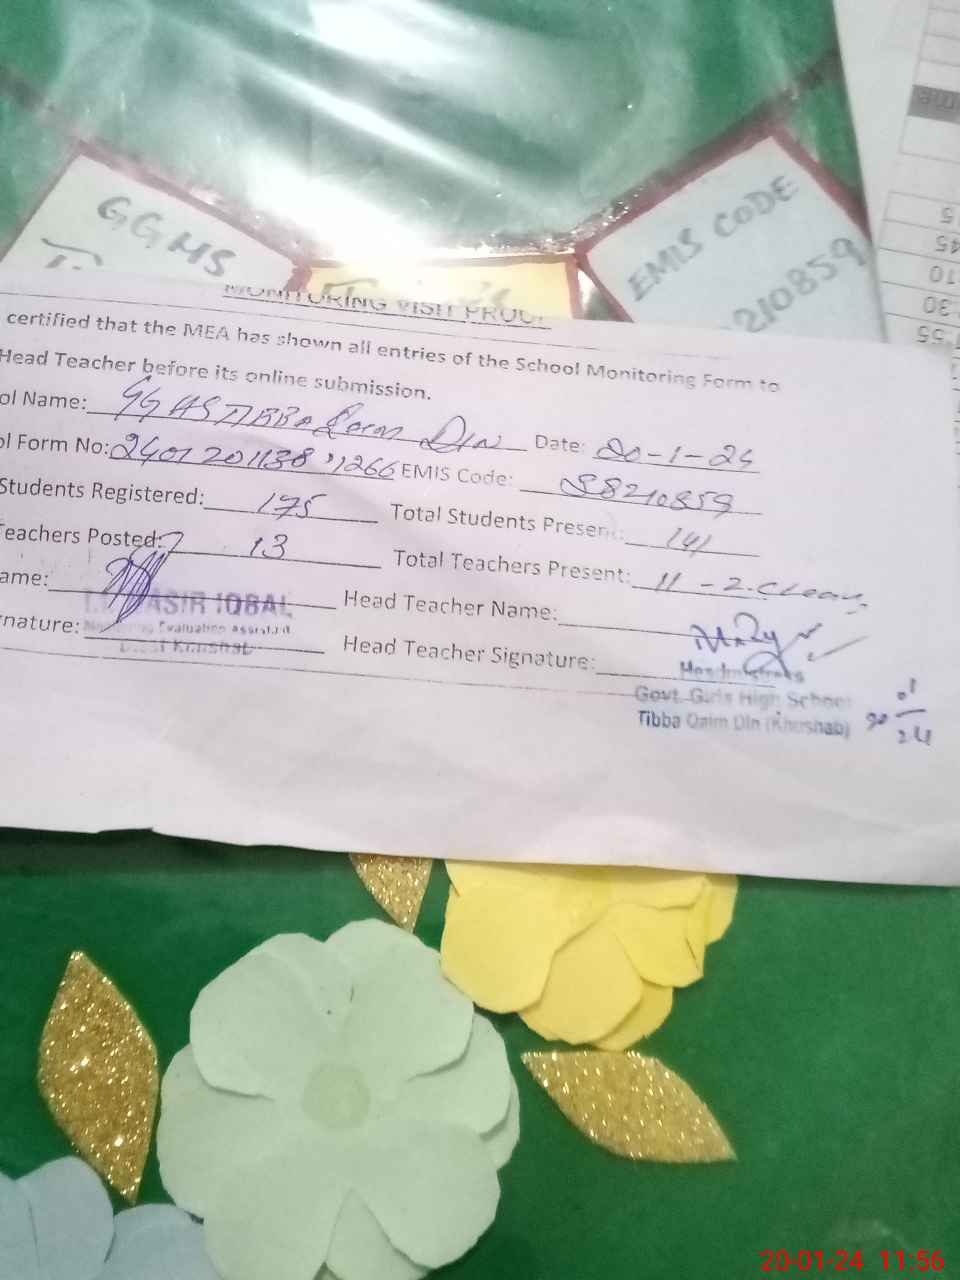 GGHS
EMIS CODE
210859
MONITORING VISIT PROOF
certified that the MEA has shown all entries of the School Monitoring Form to
Head Teacher before its online submission.
ol Name: GGHS TIBBA Din Date: 20-1-24
ol Form No: EMIS Code: 38210859
Students Registered: 175 Total Students Present: 141
eachers Posted: 13 Total Teachers Present: 11 - 2.Cleav
ame: Head Teacher Name:
ASIR IQBAL
Evaluation Assistant
nature: Head Teacher Signature:
Headmistress
Govt. Girls High School
Tibba Qaim Din (Khushab)
20-01-24 11:56